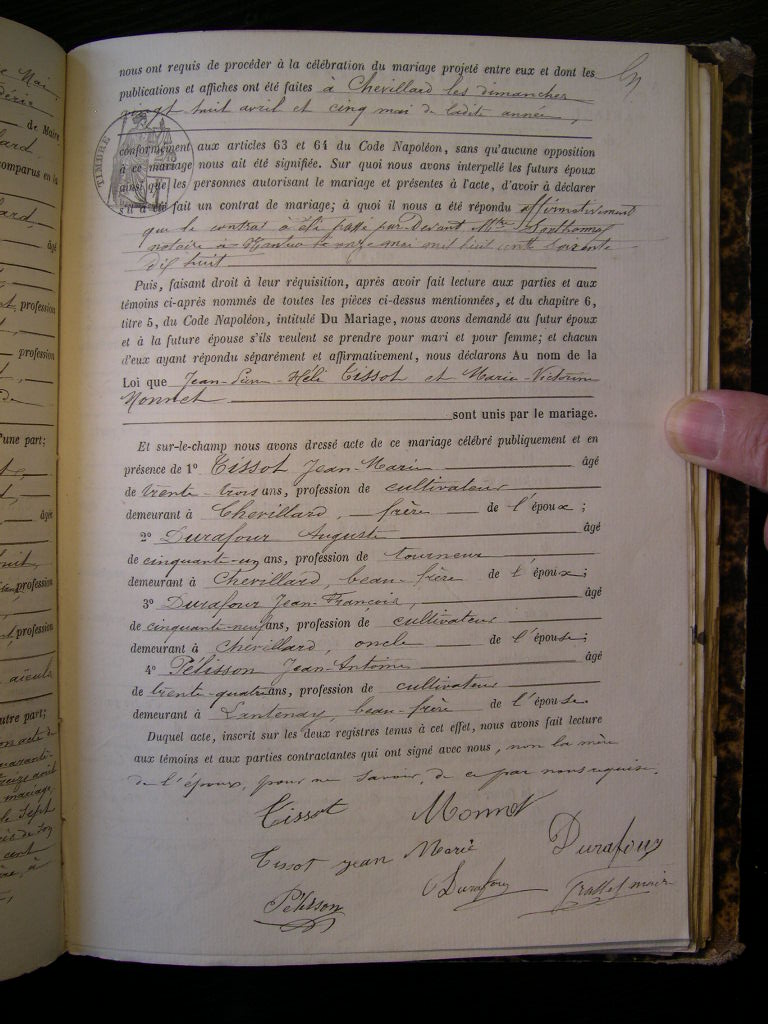 nous ont requis de procéder à la célébration du mariage projeté entre eux et dont les
publications et affiches ont été faites à Chevillard les dimanches
vingt huit avril et cinq mai de ladite année,
TIMBRE
conformément aux articles 63 et 64 du Code Napoléon, sans qu'aucune opposition
à ce mariage nous ait été signifiée. Sur quoi nous avons interpellé les futurs époux
ainsi que les personnes autorisant le mariage et présentes à l'acte, d'avoir à déclarer
s'il a été fait un contrat de mariage; à quoi il nous a été répondu affirmativement
que le contrat a été passé par-devant Mtre
notaire à Nantua le onze mai mil huit cent soixante
dix huit
Puis, faisant droit à leur réquisition, après avoir fait lecture aux parties et aux
témoins ci-après nommés de toutes les pièces ci-dessus mentionnées, et du chapitre 6,
titre 5, du Code Napoléon, intitulé Du Mariage, nous avons demandé au futur époux
et à la future épouse s'ils veulent se prendre pour mari et pour femme; et chacun
d'eux ayant répondu séparément et affirmativement, nous déclarons Au nom de la
Loi que Jean-Pierre-Héli Tissot et Marie-Victorine
Monnet
sont unis par le mariage.
Et sur-le-champ nous avons dressé acte de ce mariage célébré publiquement et en
présence de 1° Tissot Jean-Marie âgé
de trente-trois ans, profession de cultivateur
demeurant à Chevillard, frère de l'époux;
2° Durafour Auguste âgé
de cinquante-un ans, profession de tourneur
demeurant à Chevillard, beau-frère de l'époux;
3° Durafour Jean-François, âgé
de cinquante-neuf ans, profession de cultivateur
demeurant à Chevillard, oncle de l'épouse;
4° Pélisson Jean-Antoine âgé
de trente-quatre ans, profession de cultivateur
demeurant à Lantenay, beau-frère de l'épouse.
Duquel acte, inscrit sur les deux registres tenus à cet effet, nous avons fait lecture
aux témoins et aux parties contractantes qui ont signé avec nous, non la mère
de l'époux, pour ne savoir, de ce par nous requise.
Tissot Monnet
Tissot jean Marie Durafour
Pélisson Durafour